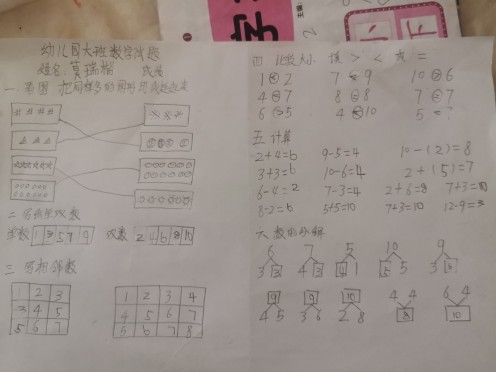 幼儿园大班数学试题
姓名: 成绩
二 写出单双数
单数 1 3 5 7 9 双数 2 4 6 8 10
三 写相邻数
1 2 3
3 4 5
5 6 7
1 2 3 4
4 5 6 7
5 6 7 8
四 比较大小 填 > < 或 =
1 2 7 9 10 6
4 7 8 8 7 7
6 5 4 10
五 计算
2+4=6 9-5=4 10-(2)=8
3+3=6 10-6=4 2+(5)=7
6-4=2 7-3=4 2+6=8 7+3=10
8-2=6 5+5=10 7+3=10 12-9=3
六 数的分解
6 7 5 10 9
3 3 4 3 4 1 5 5 3
9 9 10 4 4 6 4
4 5 3 6 2 8 8 10